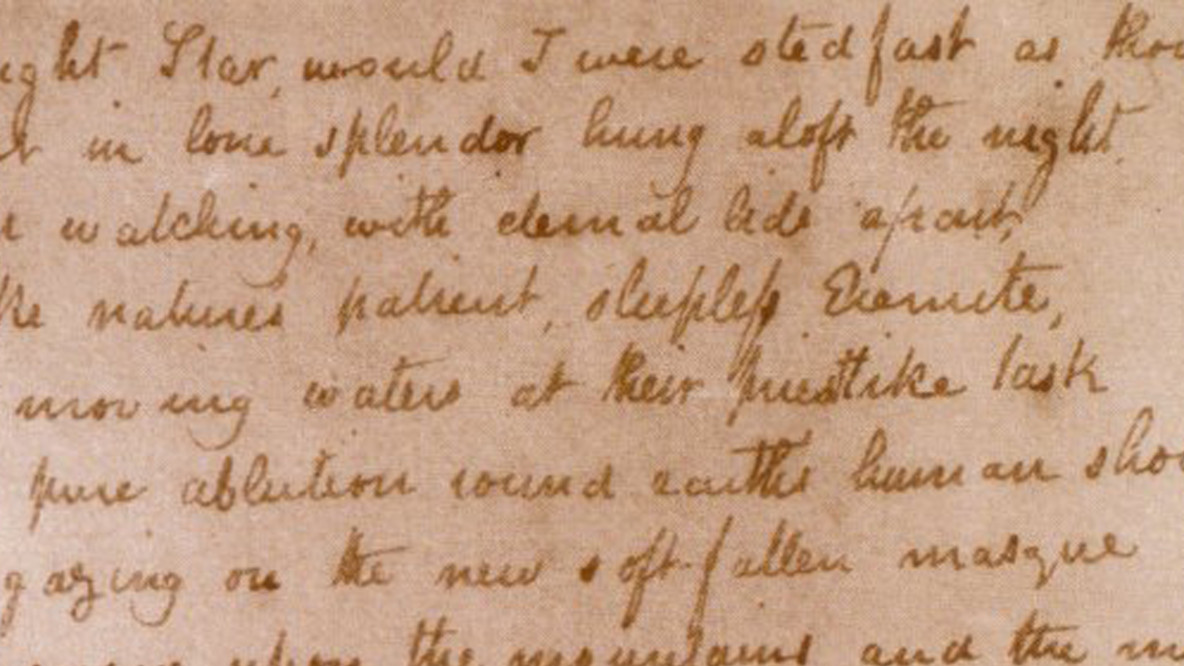 ight Star, would I were stedfast as thou
t in lone splendor hung aloft the night
watching, with eternal lids apart,
ke natures patient, sleepless Eremite,
moving waters at their priestlike task
pure ablution round earth's human sho
gazing on the new soft-fallen masque
upon the mountains and the m